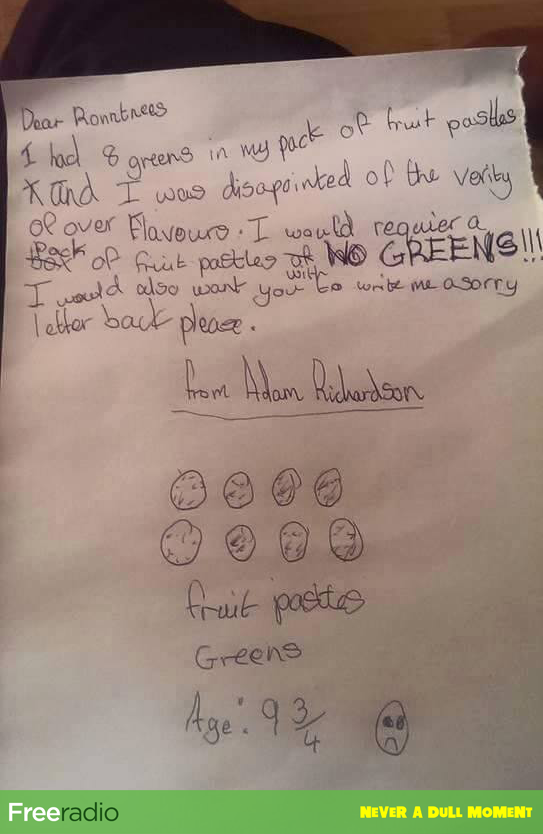 Dear Ronntrees
I had 8 greens in my pack of fruit pastles
and I was disapointed of the verity
of over flavours. I would requier a
pack of fruit pastles with NO GREENS!!!
I would also want you to write me a sorry
letter back please.
from Adam Richardson
fruit pastles
Greens
Age: 9 3/4
Freeradio
NEVER A DULL MOMENT